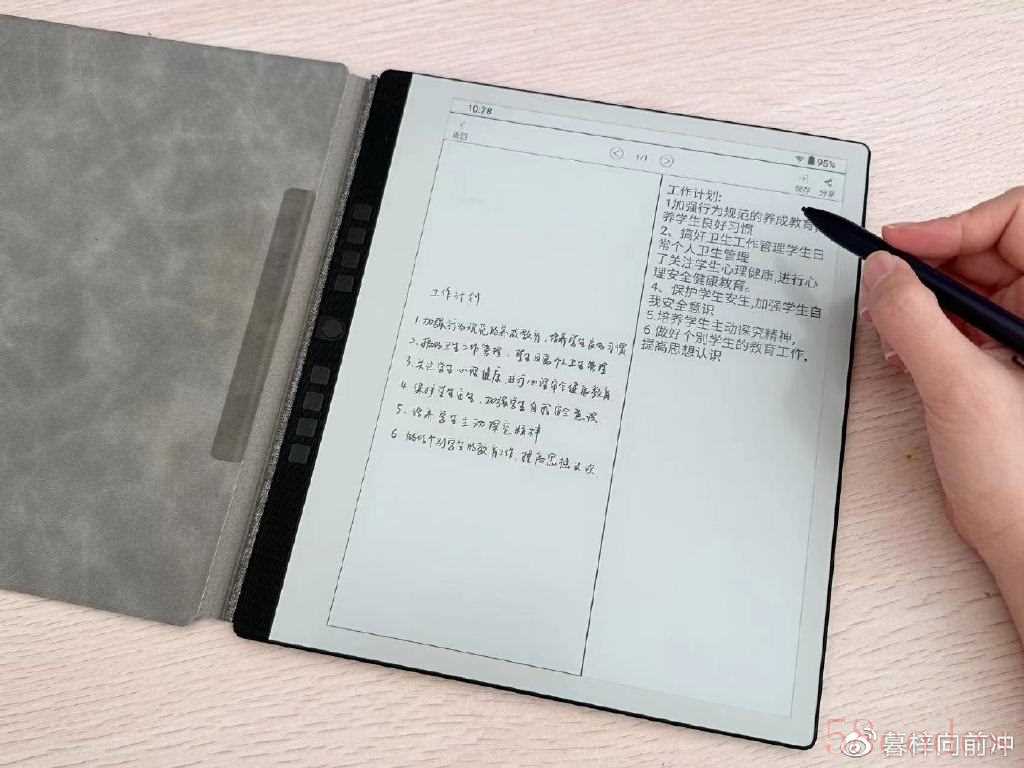 10:28
95%
返回
1/1
保存 分享
工作计划
1.加强行为规范的养成教育，培养学生良好习惯
2.搞好卫生工作管理，学生日常个人卫生管理
3.关注学生心理健康，进行心理安全健康教育
4.保护学生安全，加强学生自我安全意识
5.培养学生主动探究精神
6.做好个别学生的教育工作，提高思想认识
工作计划:
1加强行为规范的养成教育,
养学生良好习惯
2、搞好卫生工作管理学生日
常个人卫生管理
了关注学生心理健康,进行心
理安全健康教育。
4、保护学生安生,加强学生自
我安全意识
5.培养学生主动探究精神,
6.做好个别学生的教育工作。
提高思想认识
@暮梓向前冲